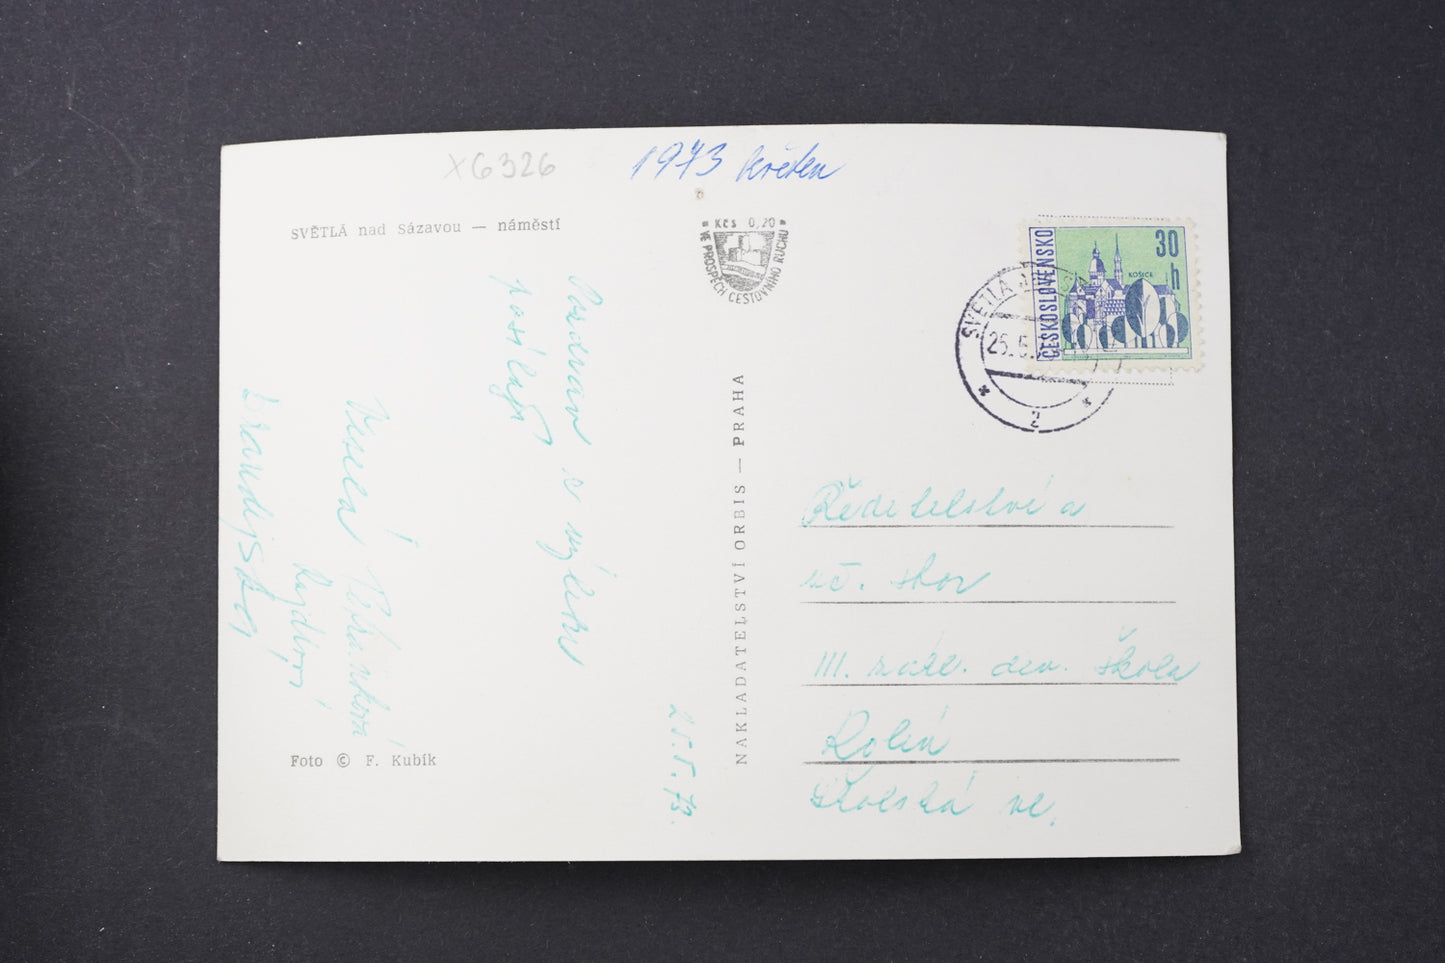 X6326
1973 květen
SVĚTLÁ nad Sázavou — náměstí
Kčs 0,20
VE PROSPĚCH CESTOVNÍHO RUCHU
ČESKOSLOVENSKO
30 h
KOŠICE
SVĚTLÁ
25. 5.
2
Pozdrav z výletu
posílají
Veselá
25. 5. 73.
NAKLADATELSTVÍ ORBIS — PRAHA
Ředitelství a
uč. sbor
III. zákl. dev. škola
Kolín
Školská ul.
Foto © F. Kubík